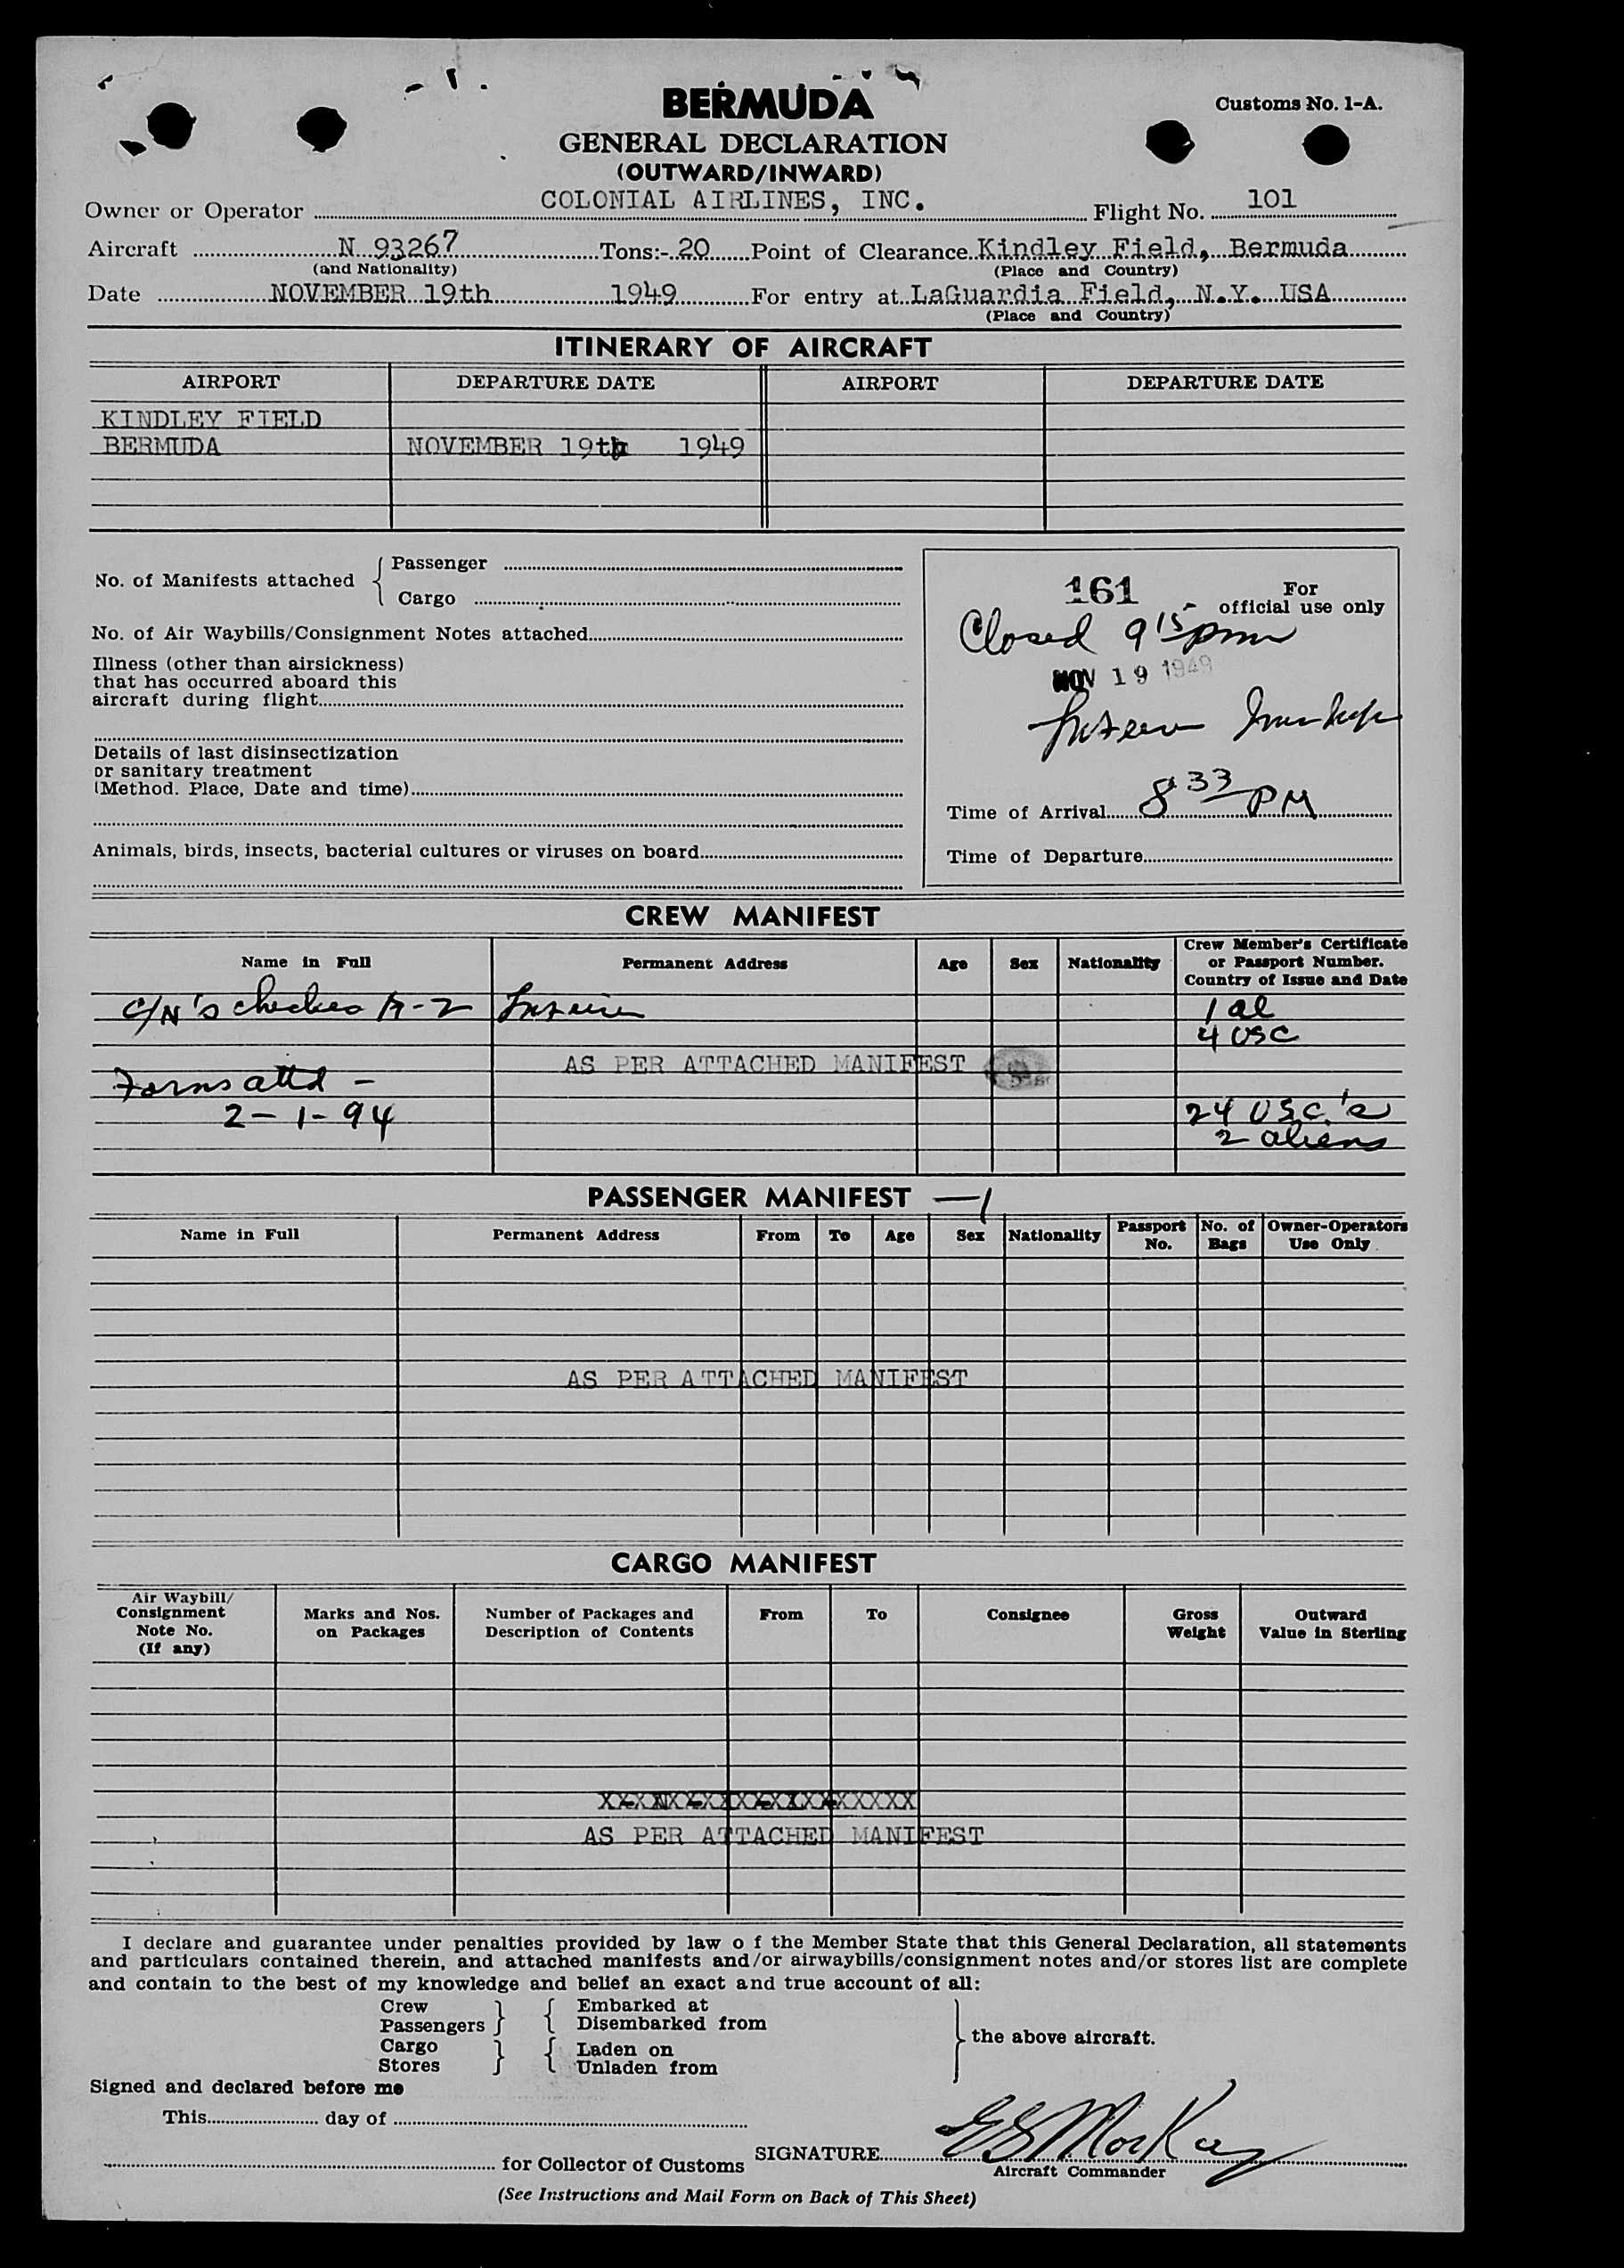 BERMUDA
Customs No. 1-A.
GENERAL DECLARATION
(OUTWARD/INWARD)
Owner or Operator COLONIAL AIRLINES, INC. Flight No. 101
Aircraft N 93267 Tons:- 20 Point of Clearance Kindley Field, Bermuda
(and Nationality) (Place and Country)
Date NOVEMBER 19th 1949 For entry at LaGuardia Field, N.Y. USA
(Place and Country)
ITINERARY OF AIRCRAFT
AIRPORT DEPARTURE DATE AIRPORT DEPARTURE DATE
KINDLEY FIELD
BERMUDA NOVEMBER 19th 1949
No. of Manifests attached { Passenger
Cargo
No. of Air Waybills/Consignment Notes attached
Illness (other than airsickness)
that has occurred aboard this
aircraft during flight
Details of last disinsectization
or sanitary treatment
(Method. Place, Date and time)
Animals, birds, insects, bacterial cultures or viruses on board
161 For
official use only
Closed 9 15 pm
NOV 19 1949
Time of Arrival 8 33 PM
Time of Departure
CREW MANIFEST
Name in Full Permanent Address Age Sex Nationality Crew Member's Certificate
or Passport Number.
Country of Issue and Date
C/N's checked 1 al
4 USC
AS PER ATTACHED MANIFEST
Forms attd -
2-1-94 24 USC's
2 aliens
PASSENGER MANIFEST —1
Name in Full Permanent Address From To Age Sex Nationality Passport No. No. of Bags Owner-Operators Use Only
AS PER ATTACHED MANIFEST
CARGO MANIFEST
Air Waybill/
Consignment
Note No.
(If any)
Marks and Nos.
on Packages
Number of Packages and
Description of Contents
From To Consignee
Gross
Weight
Outward
Value in Sterling
AS PER ATTACHED MANIFEST
I declare and guarantee under penalties provided by law o f the Member State that this General Declaration, all statements
and particulars contained therein, and attached manifests and/or airwaybills/consignment notes and/or stores list are complete
and contain to the best of my knowledge and belief an exact and true account of all:
Crew } { Embarked at
Passengers } { Disembarked from
the above aircraft.
Cargo } { Laden on
Stores } { Unladen from
Signed and declared before me
This day of
for Collector of Customs SIGNATURE
Aircraft Commander
(See Instructions and Mail Form on Back of This Sheet)